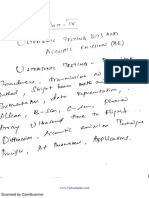 ULTRASONIC TESTING (UT) AND
ACOUSTIC EMISSION (AE)
ULTRASONIC TESTING -
Transducers, transmission and
method, straight beam and angle
Instrumentation, data representation,
A/scan, B-scan, C-scan, phased
Array Ultrasound time of Flight
Diffraction, Acoustic emission Technique
Principle, AE Parameters, Applications.
www.Vidyarthiplus.com
Scanned by CamScanner